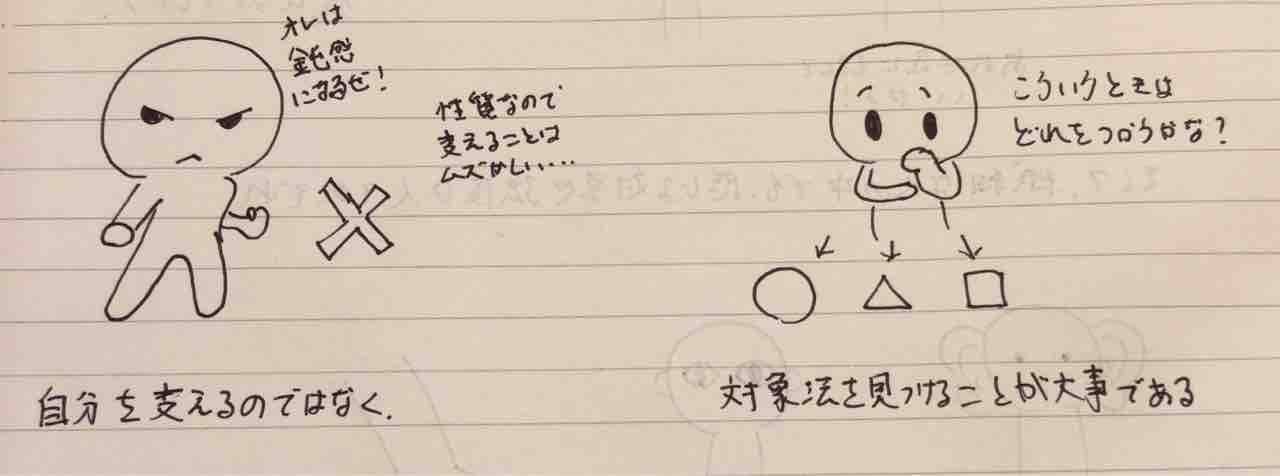 オレは
鈍感
になるぜ!
性質なので
変えることは
ムズかしい…
こういうときは
どれをつかうかな?
自分を変えるのではなく、
対象法を見つけることが大事である